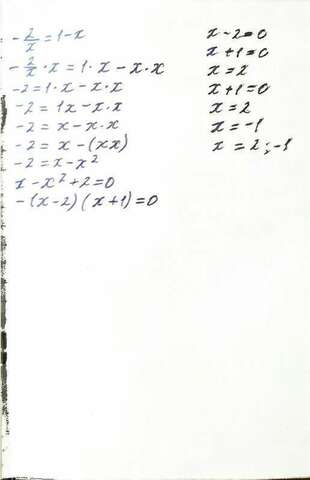 -2/x = 1-x
-2/x · x = 1 · x - x · x
-2 = 1 · x - x · x
-2 = 1x - x · x
-2 = x - x · x
-2 = x - (xx)
-2 = x - x²
x - x² + 2 = 0
-(x-2)(x+1) = 0
x - 2 = 0
x + 1 = 0
x = 2
x + 1 = 0
x = 2
x = -1
x = 2; -1